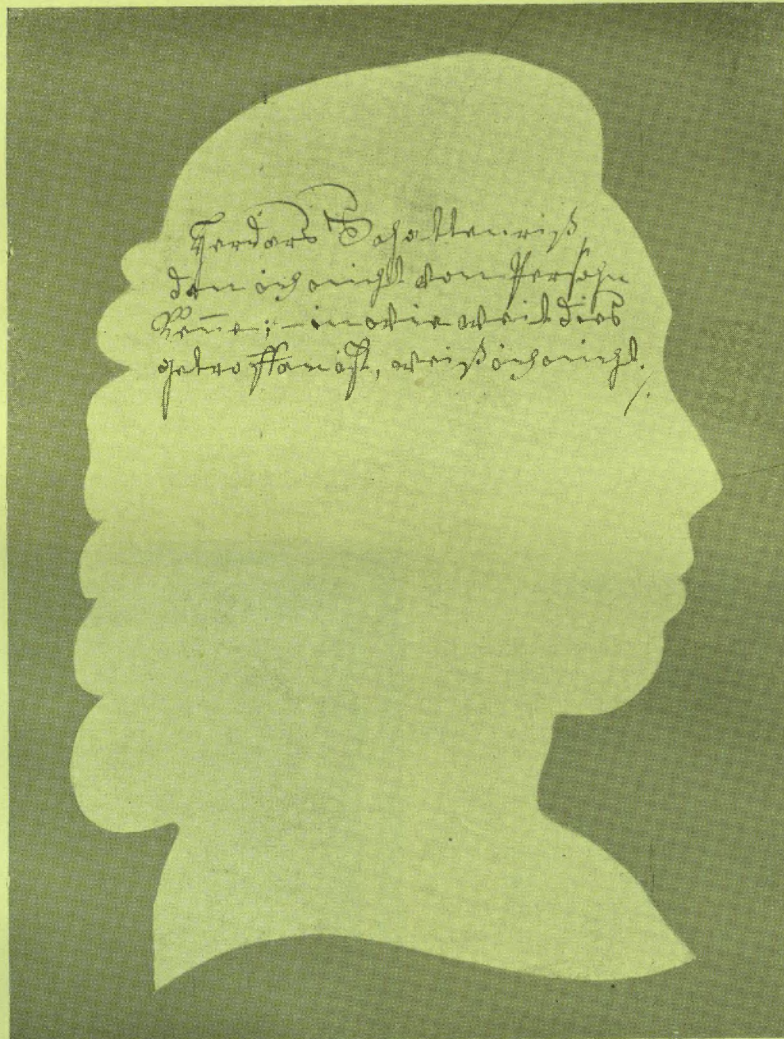 Herders Schattenriß,
den ich nicht von Persohn
kenne; — in wie weit dies
getroffen ist, weiß ich nicht.